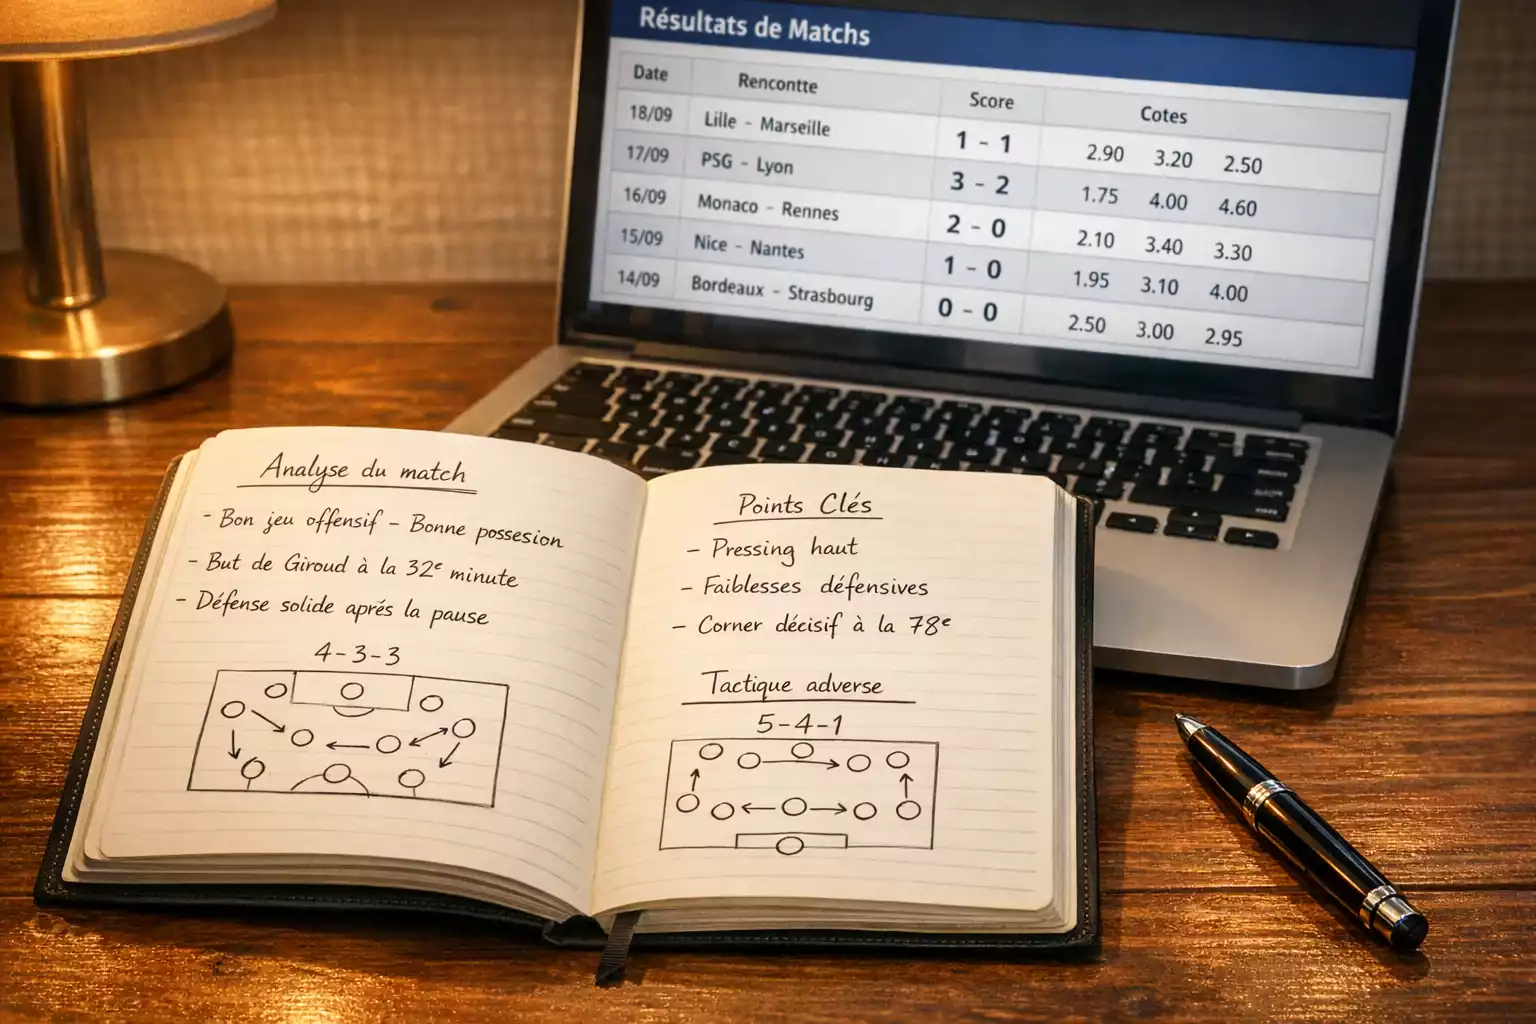 Résultats de Matchs
Date Rencontte Score Cotes
18/09 Lille - Marseille 1 - 1 2.90 3.20 2.50
17/09 PSG - Lyon 3 - 2 1.75 4.00 4.60
16/09 Monaco - Rennes 2 - 0 2.10 3.40 3.30
15/09 Nice - Nantes 1 - 0 1.95 3.10 4.00
14/09 Bordeaux - Strasbourg 0 - 0 2.50 3.00 2.95
Analyse du match
- Bon jeu offensif - Bonne possesion
- But de Giroud à la 32e minute
- Défense solide aprés la pause
4-3-3
Points Clés
- Pressing haut
- Faiblesses défensives
- Corner décisif à la 78e
Tactique adverse
5-4-1